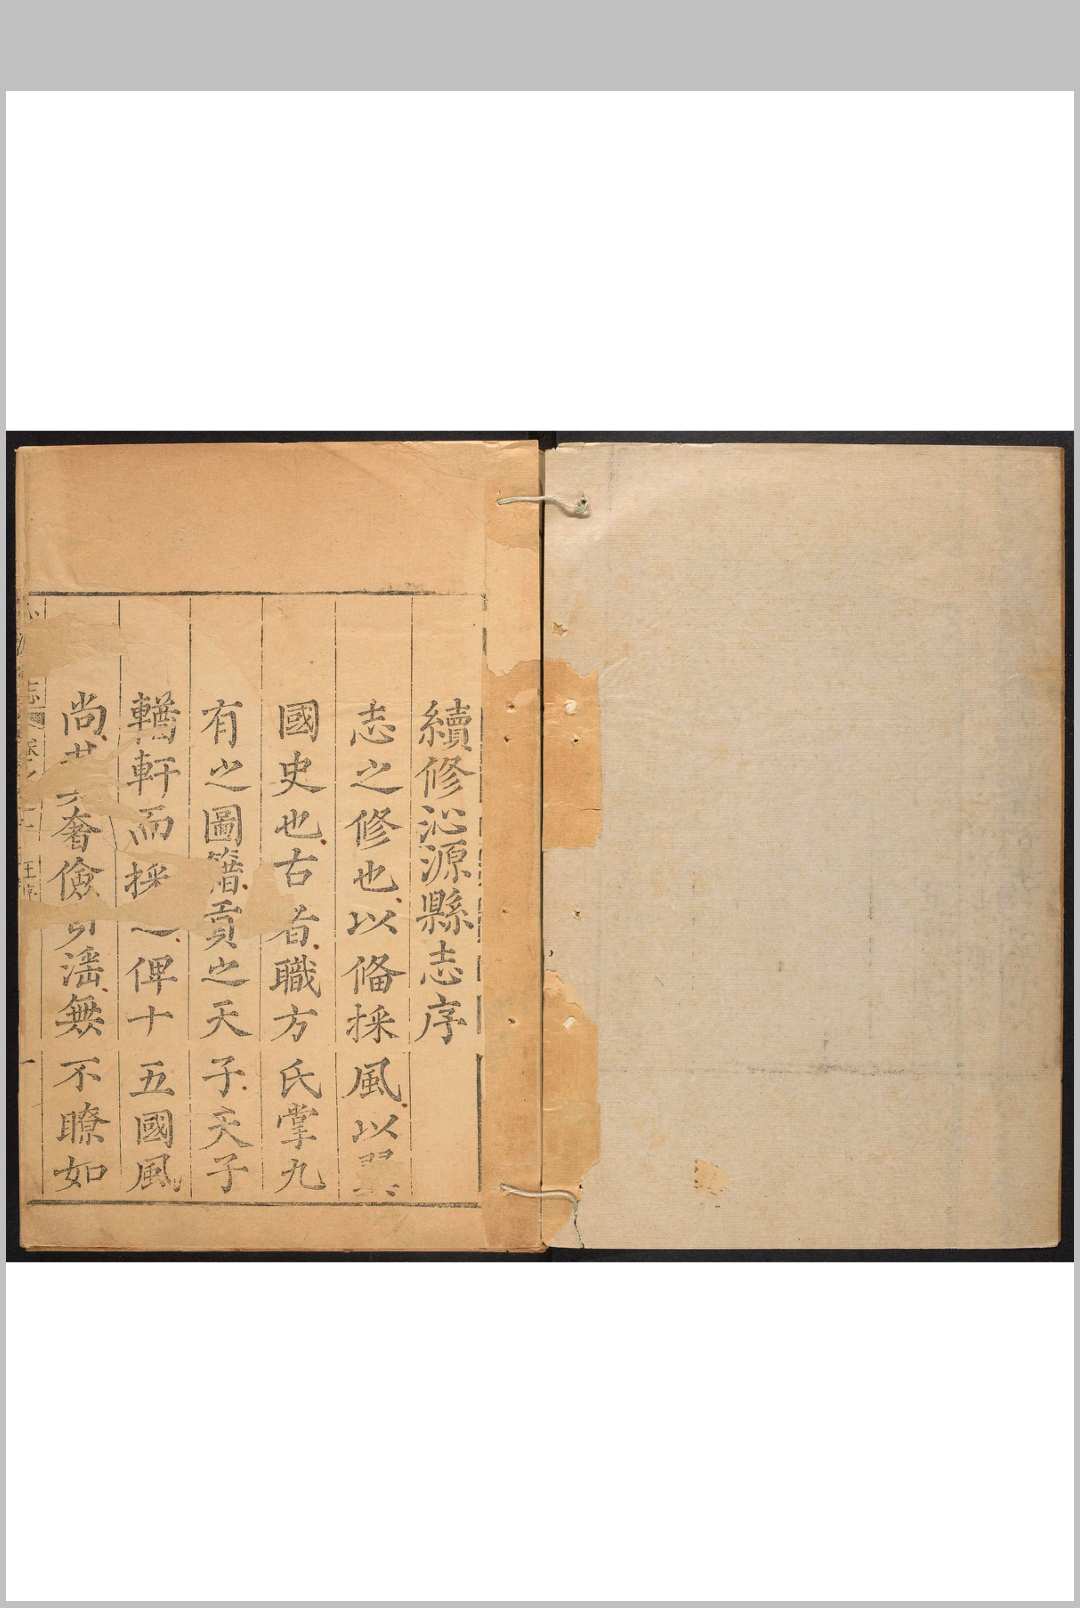 續修沁源縣志序
志之修也以備採風以
國史也古者職方氏掌九
有之圖籍貢之天子天子
輶軒而採之俾十五國風
尚其奢儉淫無不瞭如